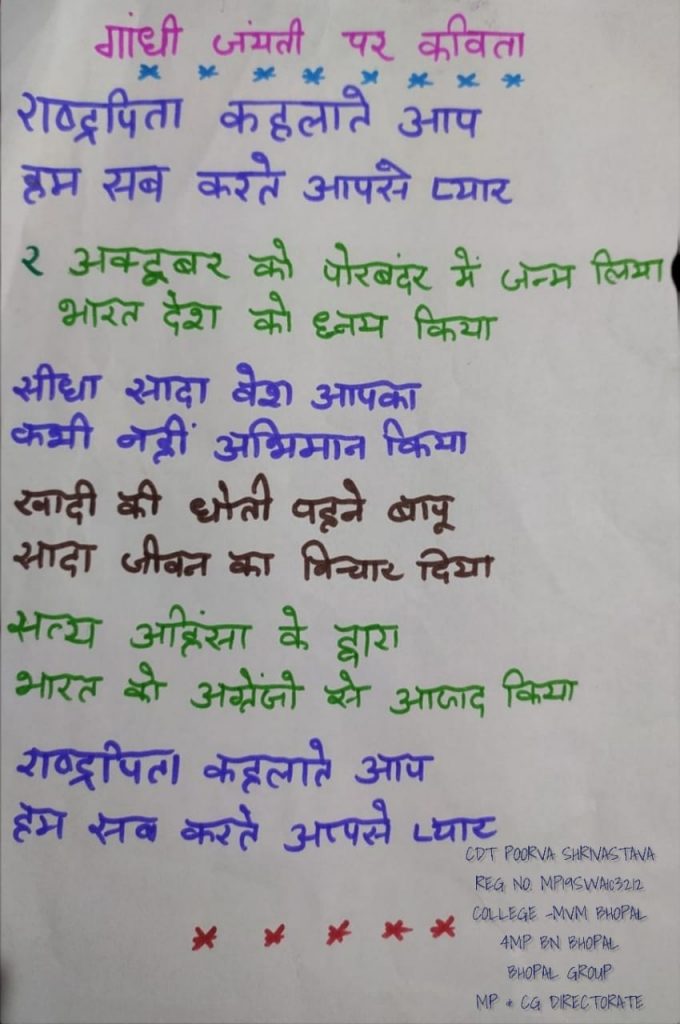 गांधी जंयती पर कविता
राष्ट्रपिता कहलाते आप
हम सब करते आपसे प्यार
२ अक्टूबर को पोरबंदर में जन्म लिया
भारत देश को ध्नय किया
सीधा सादा वेश आपका
कभी नहीं अभिमान किया
खादी की धोती पहने बापू
सादा जीवन का विचार दिया
सत्य अहिंसा के द्वारा
भारत को अग्रेंजो से आजाद किया
राष्ट्रपिता कहलाते आप
हम सब करते आपसे प्यार
CDT POORVA SHRIVASTAVA
REG NO. MP19SWA103212
COLLEGE -MVM BHOPAL
4MP BN BHOPAL
BHOPAL GROUP
MP & CG DIRECTORATE